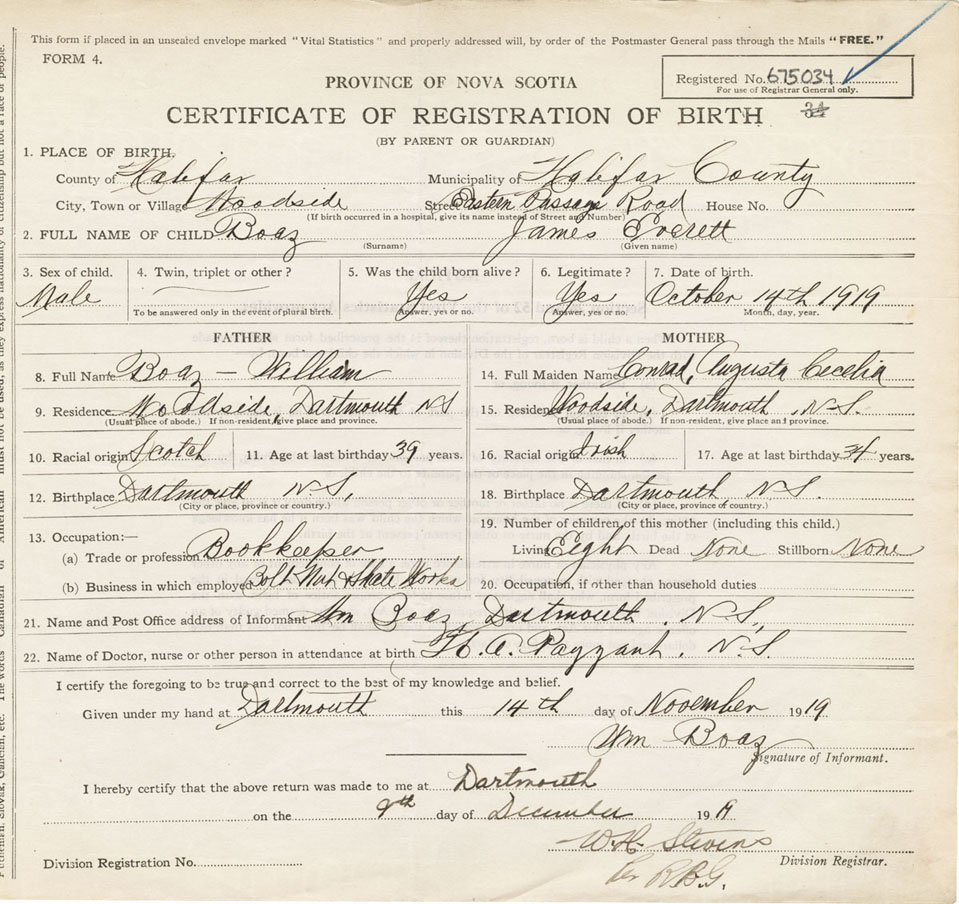 This form if placed in an unsealed envelope marked "Vital Statistics" and properly addressed will, by order of the Postmaster General pass through the Mails "FREE."
FORM 4.
Registered No. 675034
For use of Registrar General only.
PROVINCE OF NOVA SCOTIA
CERTIFICATE OF REGISTRATION OF BIRTH
(BY PARENT OR GUARDIAN)
1. PLACE OF BIRTH.
County of Halifax Municipality of Halifax County
City, Town or Village Woodside Street Eastern Passage Road House No.
(If birth occurred in a hospital, give its name instead of Street and Number)
2. FULL NAME OF CHILD Boaz James Everett
(Surname) (Given name)
3. Sex of child. 4. Twin, triplet or other? 5. Was the child born alive? 6. Legitimate? 7. Date of birth.
Male Yes Yes October 14th 1919
To be answered only in the event of plural birth. Answer, yes or no. Answer, yes or no. Month, day, year.
FATHER MOTHER
8. Full Name Boaz — William 14. Full Maiden Name Conrad, Augusta Cecelia
9. Residence Woodside, Dartmouth NS 15. Residence Woodside, Dartmouth, N.S.
(Usual place of abode.) If non-resident, give place and province. (Usual place of abode.) If non-resident, give place and province.
10. Racial origin Scotch 11. Age at last birthday 39 years. 16. Racial origin Irish 17. Age at last birthday 34 years.
12. Birthplace Dartmouth N.S. 18. Birthplace Dartmouth N.S.
(City or place, province or country.) (City or place, province or country.)
13. Occupation:— 19. Number of children of this mother (including this child.)
(a) Trade or profession Bookkeeper Living Eight Dead None Stillborn None
(b) Business in which employed Bolt Nut & Skate Works 20. Occupation, if other than household duties
21. Name and Post Office address of Informant Wm Boaz, Dartmouth, N.S.,
22. Name of Doctor, nurse or other person in attendance at birth H. A. Payzant. N.S.
I certify the foregoing to be true and correct to the best of my knowledge and belief.
Given under my hand at Dartmouth this 14th day of November 1919
Wm Boaz
Signature of Informant.
I hereby certify that the above return was made to me at Dartmouth
on the 9th day of December 1919
W.H. Stevens
Division Registration No. Division Registrar.
Per R.B.G.